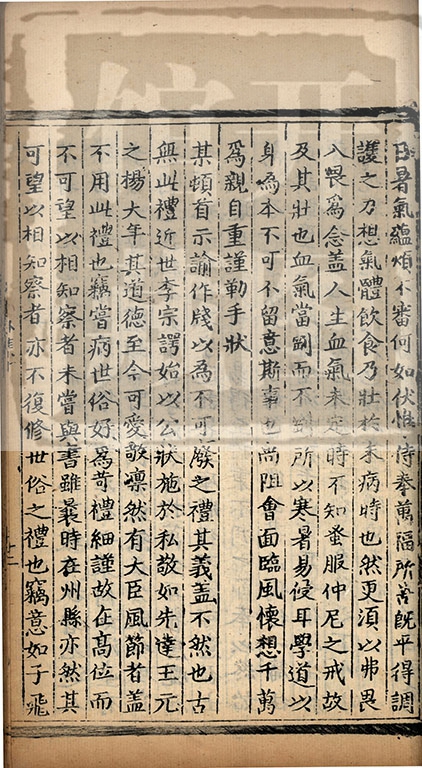 日暑氣蘊煩不審何如伏惟侍奉萬福所苦既平得調
護之力想氣體飲食乃壯於未病時也然更須以弗畏
入畏為念盖人生血氣未定時不知蚤服仲尼之戒故
及其壯也血氣當剛而不剛所以寒暑易侵耳學道以
身為本不可不留意斯事也尚阻會面臨風懷想千萬
為親自重謹勒手狀
某頓首示諭作牋以為不可廢之禮其義盖不然也古
無此禮近世李宗諤始以公狀施於私敬如先達王元
之楊大年其道德至今可愛敬凛然有大臣風節者盖
不用此禮也竊嘗病世俗好為苛禮細謹故在髙位而
不可望以相知察者未嘗與書雖曩時在州縣亦然其
可望以相知察者亦不復修世俗之禮也竊意如子飛